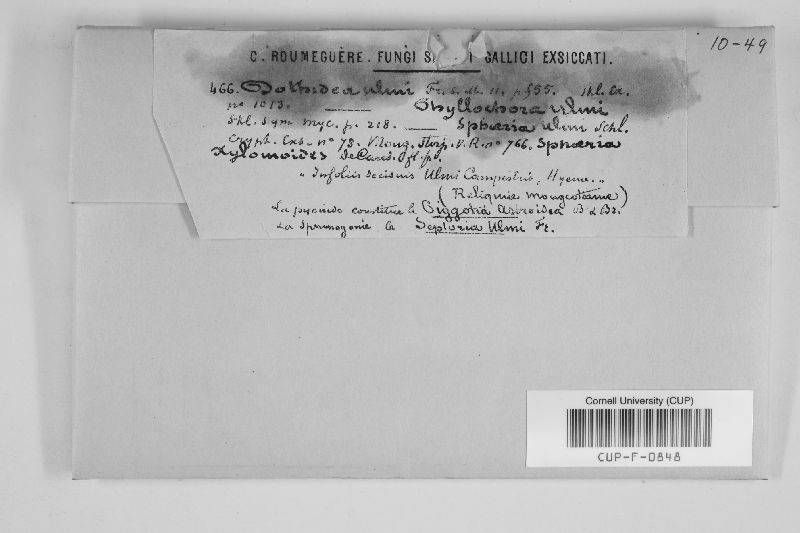 10-49
C. ROUMEGUÈRE. FUNGI S I GALLICI EXSICCATI.
466. Dothidea ulmi Fr. S. M. II. p. 555. Kl. Ex.
nº 1013. Phyllochora ulmi
Fkl. Sym. myc. p. 218. Sphæria ulmi Schl.
Crypt. Exs. nº 73. Moug. Stirp. V. R. nº 766. Sphæria
Xylomoides DeCand. fl. fr.
In foliis deciduis Ulmi Campestris, Hyeme.
(Reliquiæ mougeotanæ)
La pycnide constitue le Piggotia astroidea B & Br.
La spermogonie le Septoria Ulmi Fr.
Cornell University (CUP)
CUP-F-0848